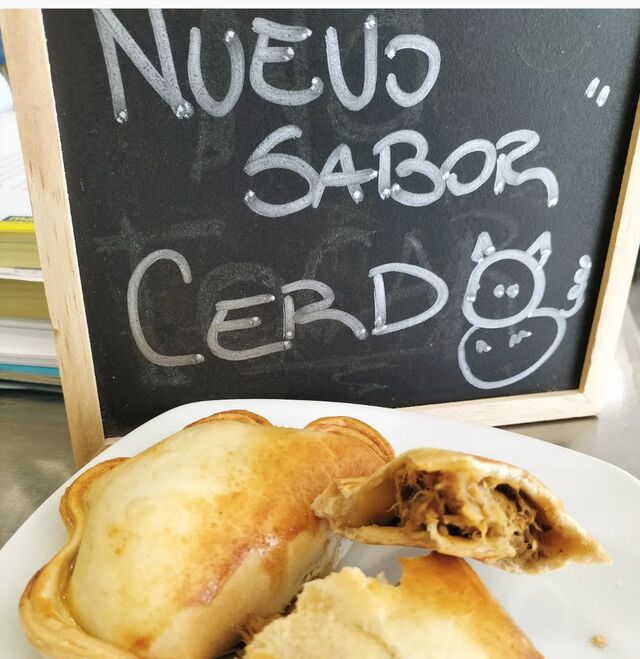 NUEVO
SABOR
CERDO